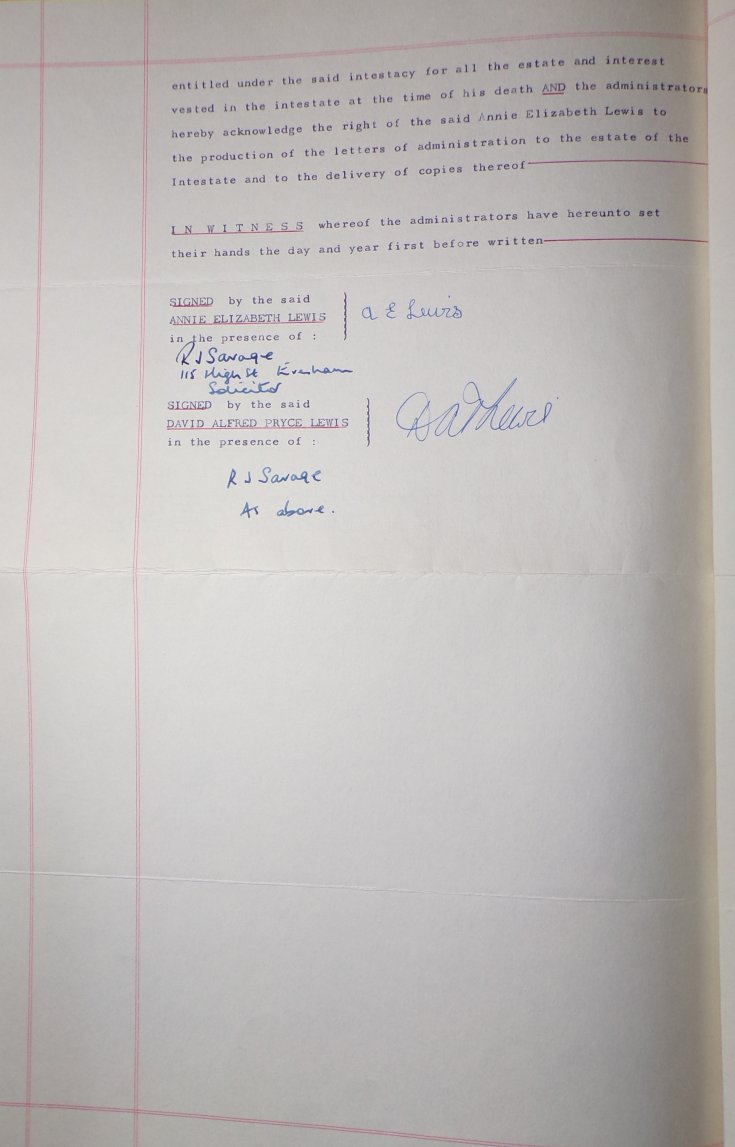 entitled under the said intestacy for all the estate and interest
vested in the intestate at the time of his death AND the administrators
hereby acknowledge the right of the said Annie Elizabeth Lewis to
the production of the letters of administration to the estate of the
Intestate and to the delivery of copies thereof
IN WITNESS whereof the administrators have hereunto set
their hands the day and year first before written
SIGNED by the said
ANNIE ELIZABETH LEWIS
in the presence of :
A E Lewis
R J Savage
115 High St Evesham
Solicitor
SIGNED by the said
DAVID ALFRED PRYCE LEWIS
in the presence of :
D A P Lewis
R J Savage
As above.